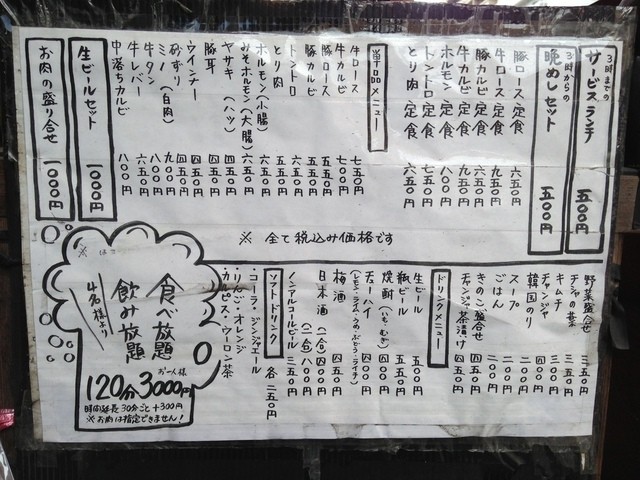 3時までの
サービスランチ 五〇〇円
3時からの
晩めしセット 五〇〇円
豚ロース定食 六五〇円
牛ロース定食 九五〇円
豚カルビ定食 六五〇円
牛カルビ定食 九五〇円
ホルモン定食 八〇〇円
トントロ定食 七五〇円
とり肉定食 六五〇円
単品メニュー
牛ロース 七五〇円
牛カルビ 七〇〇円
豚ロース 五五〇円
豚カルビ 五五〇円
トントロ 六五〇円
とり肉 五五〇円
ホルモン(小腸) 六五〇円
みそホルモン(大腸) 六五〇円
ヤサキ(ハツ) 四五〇円
豚耳 四五〇円
ウインナー 四五〇円
砂ずり 四五〇円
ミノ(白肉) 九五〇円
牛タン 八〇〇円
牛レバー 六五〇円
中落ちカルビ 八〇〇円
生ビールセット 一〇〇〇円
お肉の盛り合せ 一〇〇〇円
※ 全て税込み価格です
野菜盛合せ 三五〇円
チシャの葉
キムチ 三〇〇円
チャンジャ 四〇〇円
韓国のり 二〇〇円
スープ 二〇〇円
ごはん 二〇〇円
きのこ盛合せ 四〇〇円
チャンジャ茶漬け 四五〇円
ドリンクメニュー
生ビール 五〇〇円
瓶ビール 五五〇円
焼酎(いも・むぎ) 四〇〇円
チューハイ 四〇〇円
(レモン・ライム・うめ・ぶどう・ライチ)
梅酒 四五〇円
日本酒(一合) 四〇〇円
(二合) 八〇〇円
ノンアルコールビール 三五〇円
ソフトドリンク 各二五〇円
・コーラ・ジンジャエール
・りんご・オレンジ
・カルピス・ウーロン茶
食べ放題
飲み放題
4名様より
お一人様
120分3000円
時間延長30分ごと+300円
※お肉は指定できません!